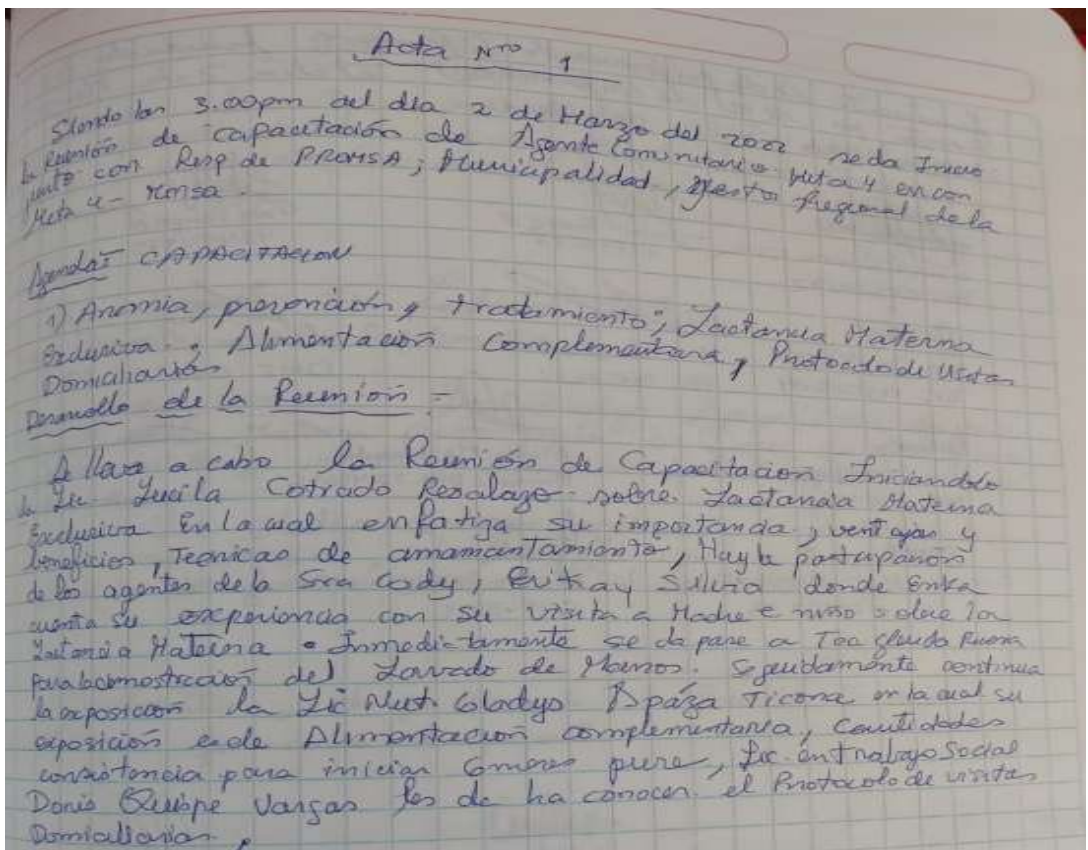 Acta Nro 1
Siendo las 3.00pm del dia 2 de Marzo del 2022 se da Inicio
la Reunión de capacitación de Agente Comunitario Meta 4 en con
junto con Resp de PROMSA; Municipalidad, Regional de la
Meta 4 -
Agenda: CAPACITACION
1) Anemia, prevención y tratamiento; Lactancia Materna
Exclusiva, Alimentación Complementaria, Protocolo de Visitas
Domiciliarias
Desarrollo de la Reunión =
Se lleva a cabo la Reunión de Capacitacion Iniciandolo
la Lic Lucila Cotrado sobre Lactancia Materna
Exclusiva En la cual enfatiza su importancia, ventajas y
beneficios, Tecnicas de amamantamiento, Hay la participación
de los agentes de la Sra Cody, Erika y Silvia donde Erika
cuenta su experiencia con su visita a Madre e niño sobre la
Lactancia Materna . Inmediatamente se da pase a
para la demostración del Lavado de Manos. Seguidamente continua
la exposicion la Lic Nut. Gladys Apaza Ticona en la cual su
exposición es de Alimentacion complementaria, Cantidades
consistencia para iniciar pure, Lic. en trabajo Social
Doris Quispe Vargas les da ha conocer el Protocolo de visitas
Domiciliarias.